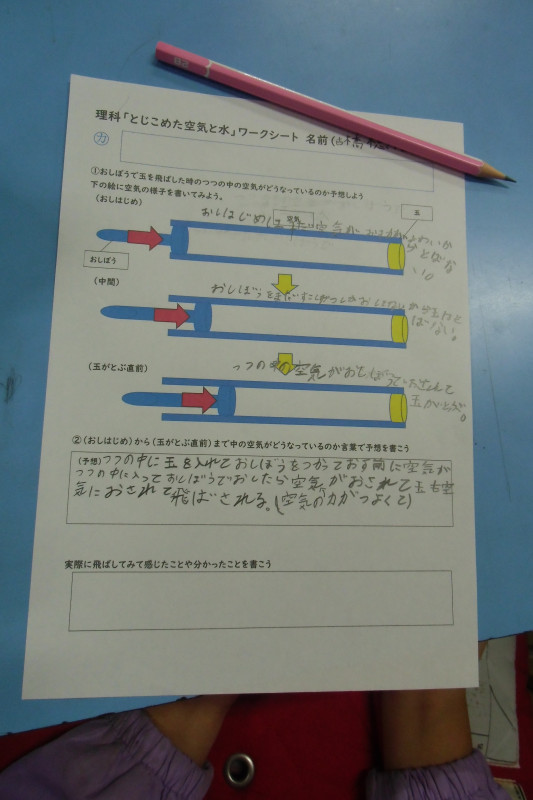 理科「とじこめた空気と水」ワークシート 名前(
カ
①おしぼうで玉を飛ばした時のつつの中の空気がどうなっているのか予想しよう
下の絵に空気の様子を書いてみよう。
(おしはじめ)
おしはじめは 空気が
空気
玉
おしぼう
(中間)
おしぼうをまだすこししかおしてないから玉はと
ばない。
(玉がとぶ直前)
つつの中の空気がおしぼうで
玉がとぶ。
②(おしはじめ)から(玉がとぶ直前)まで中の空気がどうなっているのか言葉で予想を書こう
(予想)つつの中に玉を入れておしぼうをつかっておす前に空気が
つつの中に入っておしぼうでおしたら空気がおされて玉も空
気におされて飛ばされる。(空気の力がつよくて)
実際に飛ばしてみて感じたことや分かったことを書こう